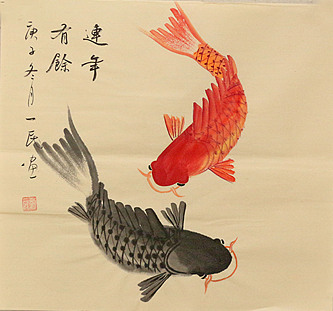 連年
有餘
庚子冬月一民畫